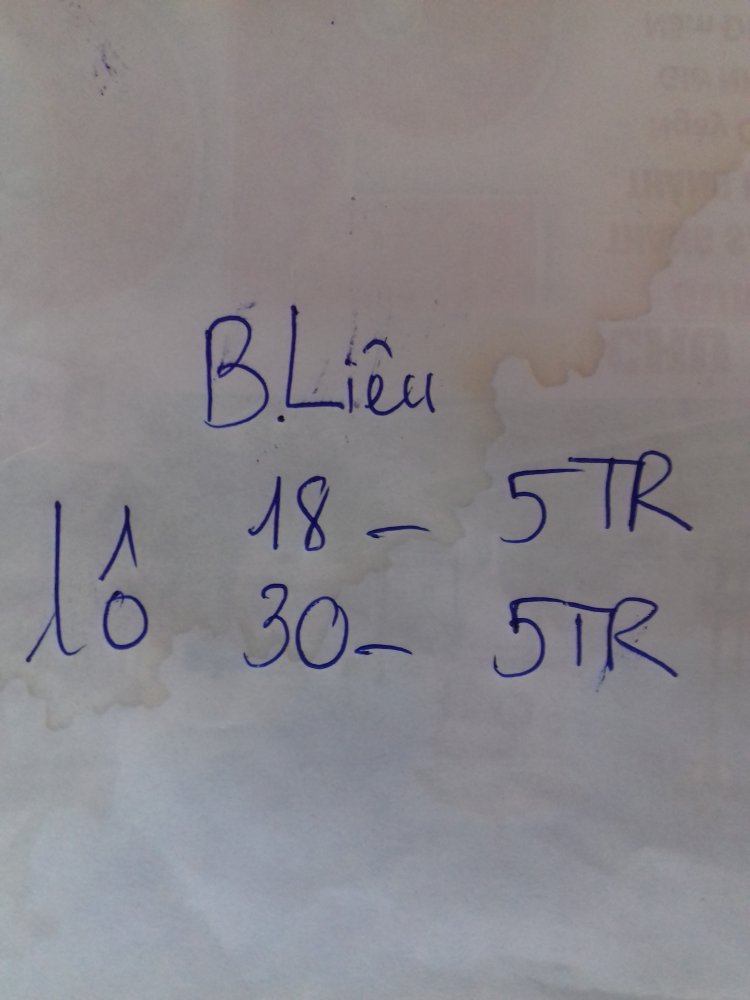 B.Liêu
18 - 5TR
lô
30 - 5TR